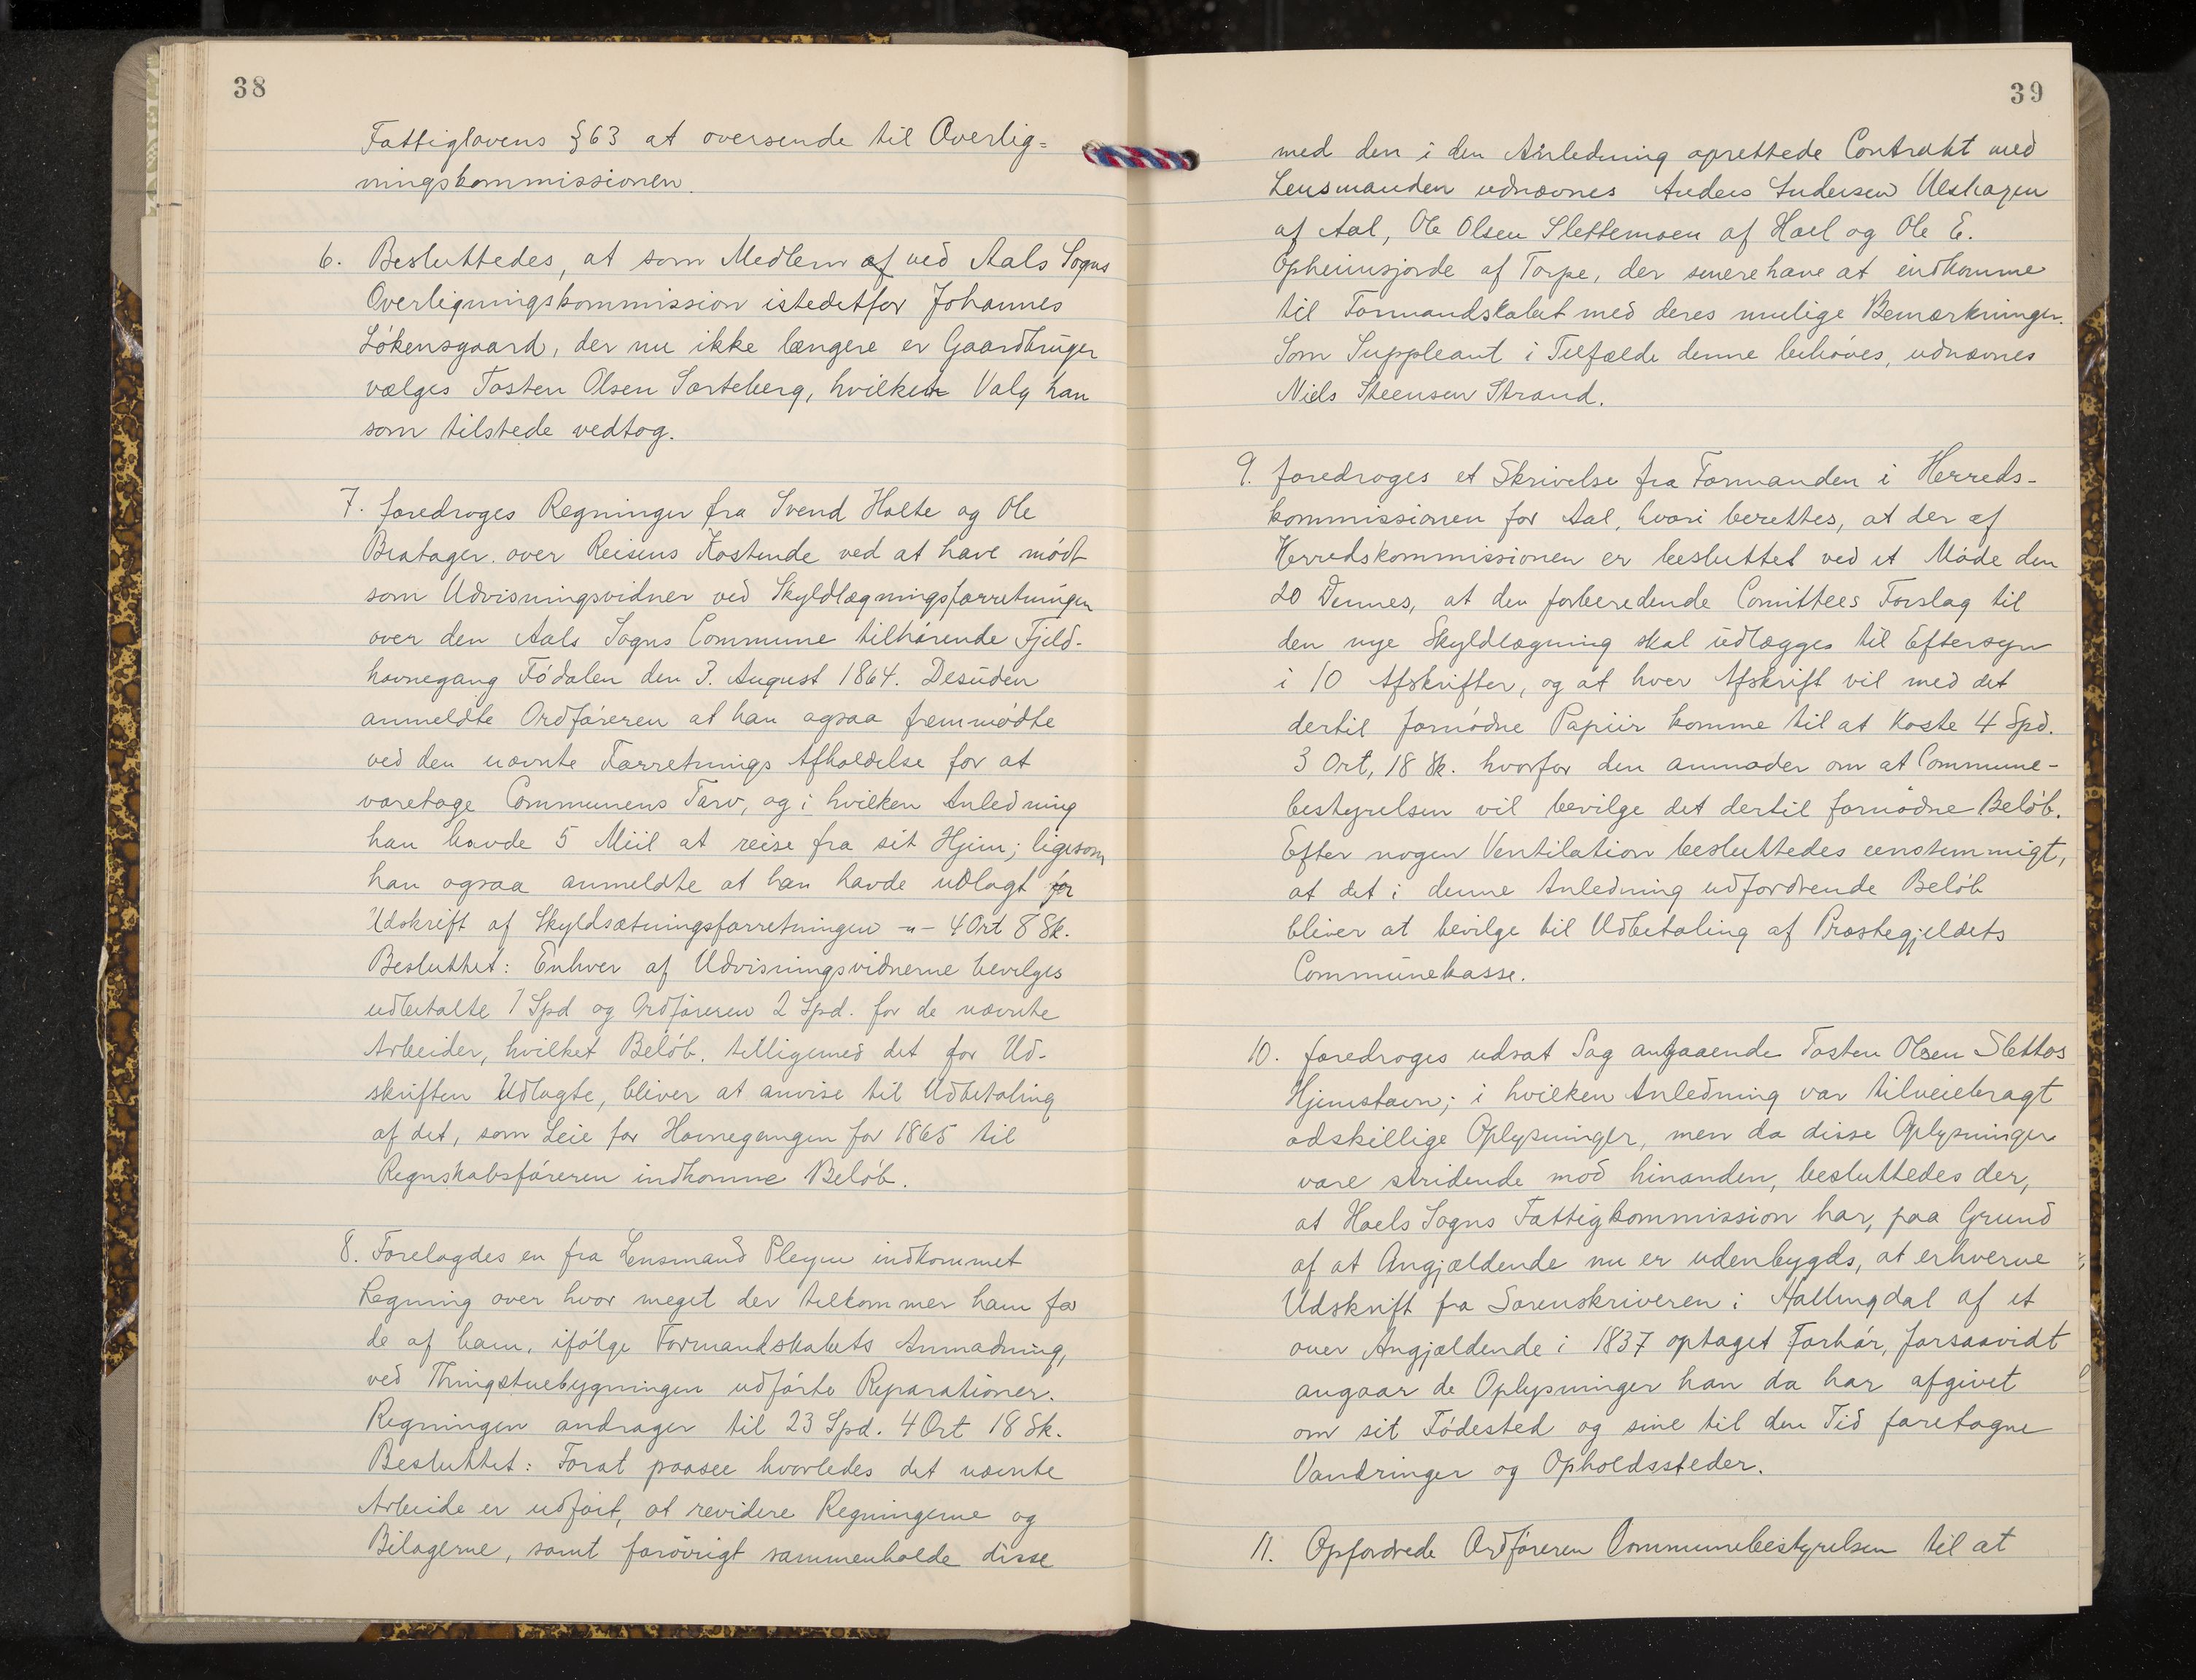 38
Fattiglovens §63 at oversende til Overlig=
ningskommissionen.
6. Besluttedes, at som Medlem af ved Aals Sogns
Overligningskommission istedetfor Johannes
Lökensgaard, der nu ikke længere er Gaardbruger
vælges Tosten Olsen Sarteberg, hvilket Valg han
som tilstede vedtog.
7. foredroges Regninger fra Svend Holte og Ole
Bratager. over Reisens Kostende ved at have mödt
som Udvisningsvidner ved Skyldlægningsforretningen
over den Aals Sogns Commune tilhörende Fjeld-
havnegang Födalen den 3. August 1864. Desuden
anmeldte Ordföreren at han ogsaa fremmödte
ved den nævnte Forretnings Afholdelse for at
varetage Communens Tarv, og i hvilken Anledning
han havde 5 Miil at reise fra sit Hjem; ligesom
han ogsaa anmeldte at han havde udlagt for
Udskrift af Skyldsætningsforretningen -"- 4 Ort 8 Sk.
Besluttet: Enhver af Udvisningsvidnerne bevilges
udbetalte 1 Spd og Ordföreren 2 Spd. for de nævnte
Arbeider, hvilket Belöb. tilligemed det for Ud-
skriften Udlagte, bliver at anvise til Udbetaling
af det, som Leie for Havnegangen for 1865 til
Regnskabsföreren indkomne Belöb.
8. Forelagdes en fra Lensmand Pleym indkommet
Regning over hvor meget der tilkommer ham for
de af ham, ifölge Formandskabets Anmodning,
ved Thingstuebygningen udförte Reparationer.
Regningen andrager til 23 Spd. 4 Ort 18 Sk.
Besluttet: Forat paasee hvorledes det nævnte
Arbeide er udfört, at revidere Regningerne og
Bilagerne, samt forövrigt sammenholde disse
39
med den i den Anledning oprettede Contrakt med
Lensmanden udnævnes Anders Andersen Ulshagen
af Aal, Ole Olsen Slettemoen af Hoel og Ole E.
Opheimsjorde af Torpe, der senere have at indkomme
til Formandskabet med deres mulige Bemærkninger.
Som Suppleant i Tilfælde denne behöves, udnævnes
Niels Steensen Strand.
9. foredroges et Skrivelse fra Formanden i Herreds-
kommissionen for Aal, hvori berettes, at der af
Herredskommissionen er besluttet ved et Möde den
20 Dennes, at den forberedende Comittees Forslag til
den nye Skyldlægning skal udlægges til Eftersyn
i 10 Afskrifter, og at hver Afskrift vil med det
dertil fornödne Papiir komme til at Koste 4 Spd.
3 Ort, 18 Sk. hvorfor den anmoder om at Commune-
bestyrelsen vil bevilge det dertil fornödne Belöb.
Efter nogen Ventilation besluttedes eenstemmigt,
at det i denne Anledning udfordrende Belöb
bliver at bevilge til Udbetaling af Præstegjeldets
Communekasse.
10. foredroges udsat Sag angaaende Tosten Olsen Slettos
Hjemstavn; i hvilken Anledning var tilveiebragt
adskillige Oplysninger, men da disse Oplysninger
vare stridende mod hinanden, besluttedes der,
at Hoels Sogns Fattigkommission har, paa Grund
af at Angjældende nu er udenbygds, at erhverve
Udskrift fra Sorenskriveren i Hallingdal af et
over Angjældende i 1837 optaget Forhör, forsaavidt
angaar de Oplysninger han da har afgivet
om sit Födested og sine til den Tid foretagne
Vandringer og Opholdssteder.
11. Opfordrede Ordföreren Communebestyrelsen til at